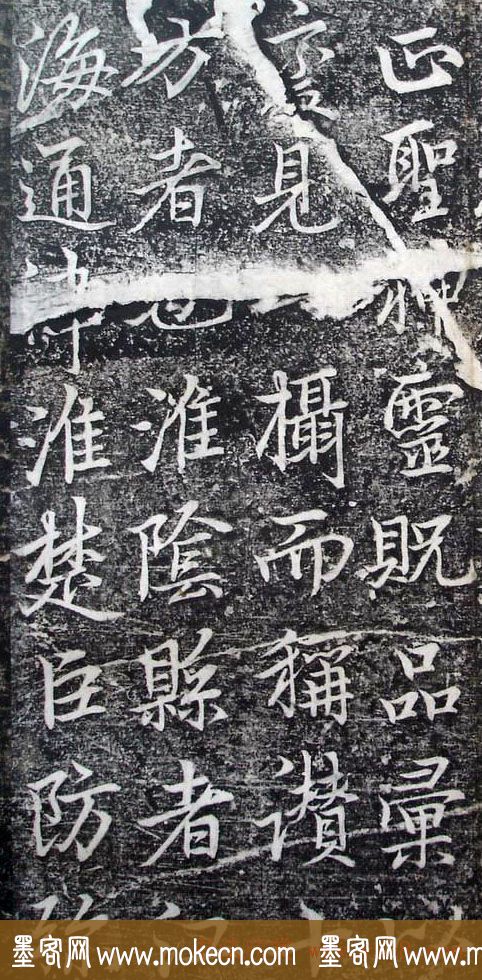 正聖神靈貺品彙
見攝而稱讚
方者也淮陰縣者
海通津淮楚巨防
墨客网 www.mokecn.com 墨客网 www.mokecn.com